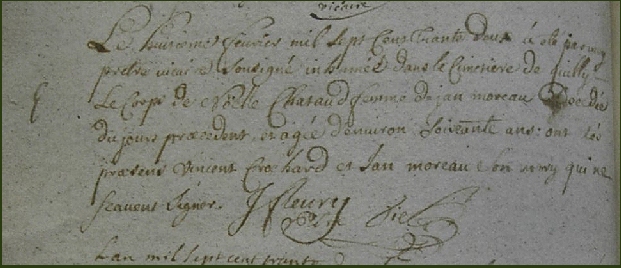 vicaire
Le huictieme fevrier mil sept Cens Trante deux à été par moy
prêtre vicaire Sousigné inhumée dans le Cimetiere de quilly
Le Corps de Noelle Chataud femme de jan moreau Decedée
du jours præcedent, et agiée d'environ Soixante ans: ont étés
præsens vincent Crochard et Jan moreau Son mary qui ne
scavent signer. J Fleury
Lan mil sept cent trante